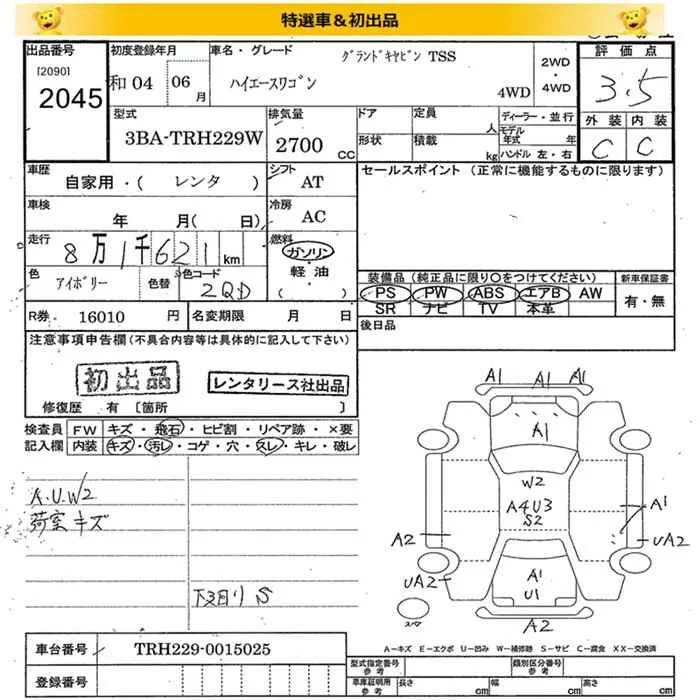 特選車&初出品
出品番号
[2090]
2045
初度登録年月
和04 06月
車名・グレード
グランドキャビン TSS
ハイエースワゴン
4WD
2WD
・
4WD
評価点
3.5
外装 内装
C C
型式
3BA-TRH229W
排気量
2700 CC
ドア
定員
人
形状
積載
kg
ディーラー・並行
モデル年式 年
ハンドル 左・右
車歴
自家用・( レンタ )
シフト
AT
セールスポイント(正常に機能するものに限ります)
車検
年 月( 日)
冷房
AC
走行
8万1千621km
燃料
ガソリン
・
軽 油
・
( )
色
アイボリー
色替
色コード
2QD
装備品(純正品に限り〇をつけてください)
PS PW ABS エアB AW
SR ナビ TV 本革
新車保証書
有・無
R券 16010 円
名変期限 月 日
後日品
注意事項申告欄(不具合内容等は具体的に記入して下さい)
初出品
レンタリース社出品
修復歴 有 [箇所 ]
検査員記入欄
FW キズ・飛石・ヒビ割・リペア跡・×要
内装 キズ・汚レ・コゲ・穴・スレ・キレ・破レ
A.U.W2
荷室キズ
下廻り S
A1 A1 A1
A1
W2
A4U3
S2
A1
A2
UA2
UA2
A1
U1
A2
スペア
A-キズ E-エクボ U-凹み W-補修跡 S-サビ C-腐食 XX-交換済
車台番号
TRH229-0015025
登録番号
型式指定番号
参考
類別区分番号
参考
車庫証明用
参考
長さ cm
幅 cm
高さ cm